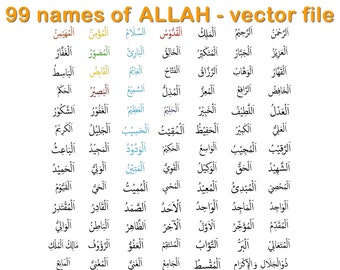 99 names of ALLAH - vector file
الرَّحْمٰنُ الرَّحِيْمُ الْمَلِكُ الْقُدُّوْسُ السَّلَامُ الْمُؤْمِنُ الْمُهَيْمِنُ
الْعَزِيْزُ الْجَبَّارُ الْمُتَكَبِّرُ الْخَالِقُ الْبَارِئُ الْمُصَوِّرُ الْغَفَّارُ
الْقَهَّارُ الْوَهَّابُ الرَّزَّاقُ الْفَتَّاحُ الْعَلِيْمُ الْقَابِضُ الْبَاسِطُ
الْخَافِضُ الرَّافِعُ الْمُعِزُّ الْمُذِلُّ السَّمِيْعُ الْبَصِيْرُ الْحَكَمُ
الْعَدْلُ اللَّطِيْفُ الْخَبِيْرُ الْحَلِيْمُ الْعَظِيْمُ الْغَفُوْرُ الشَّكُوْرُ
الْعَلِيُّ الْكَبِيْرُ الْحَفِيْظُ الْمُقِيْتُ الْحَسِيْبُ الْجَلِيْلُ الْكَرِيْمُ
الرَّقِيْبُ الْمُجِيْبُ الْوَاسِعُ الْحَكِيْمُ الْوَدُوْدُ الْمَجِيْدُ الْبَاعِثُ
الشَّهِيْدُ الْحَقُّ الْوَكِيْلُ الْقَوِيُّ الْمَتِيْنُ الْوَلِيُّ الْحَمِيْدُ
الْمُحْصِي الْمُبْدِئُ الْمُعِيْدُ الْمُحْيِي الْمُمِيْتُ الْحَيُّ الْقَيُّوْمُ
الْوَاجِدُ الْمَاجِدُ الْوَاحِدُ الْأَحَدُ الصَّمَدُ الْقَادِرُ الْمُقْتَدِرُ
الْمُقَدِّمُ الْمُؤَخِّرُ الْأَوَّلُ الْآخِرُ الظَّاهِرُ الْبَاطِنُ الْوَالِي
الْمُتَعَالِي الْبَرُّ التَّوَّابُ الْمُنْتَقِمُ الْعَفُوُّ الرَّؤُوْفُ مَالِكُ الْمُلْكِ
ذُوالْجَلَالِ وَالْإِكْرَامِ الْمُقْسِطُ الْجَامِعُ الْغَنِيُّ الْمُغْنِيُ الْمَانِعُ